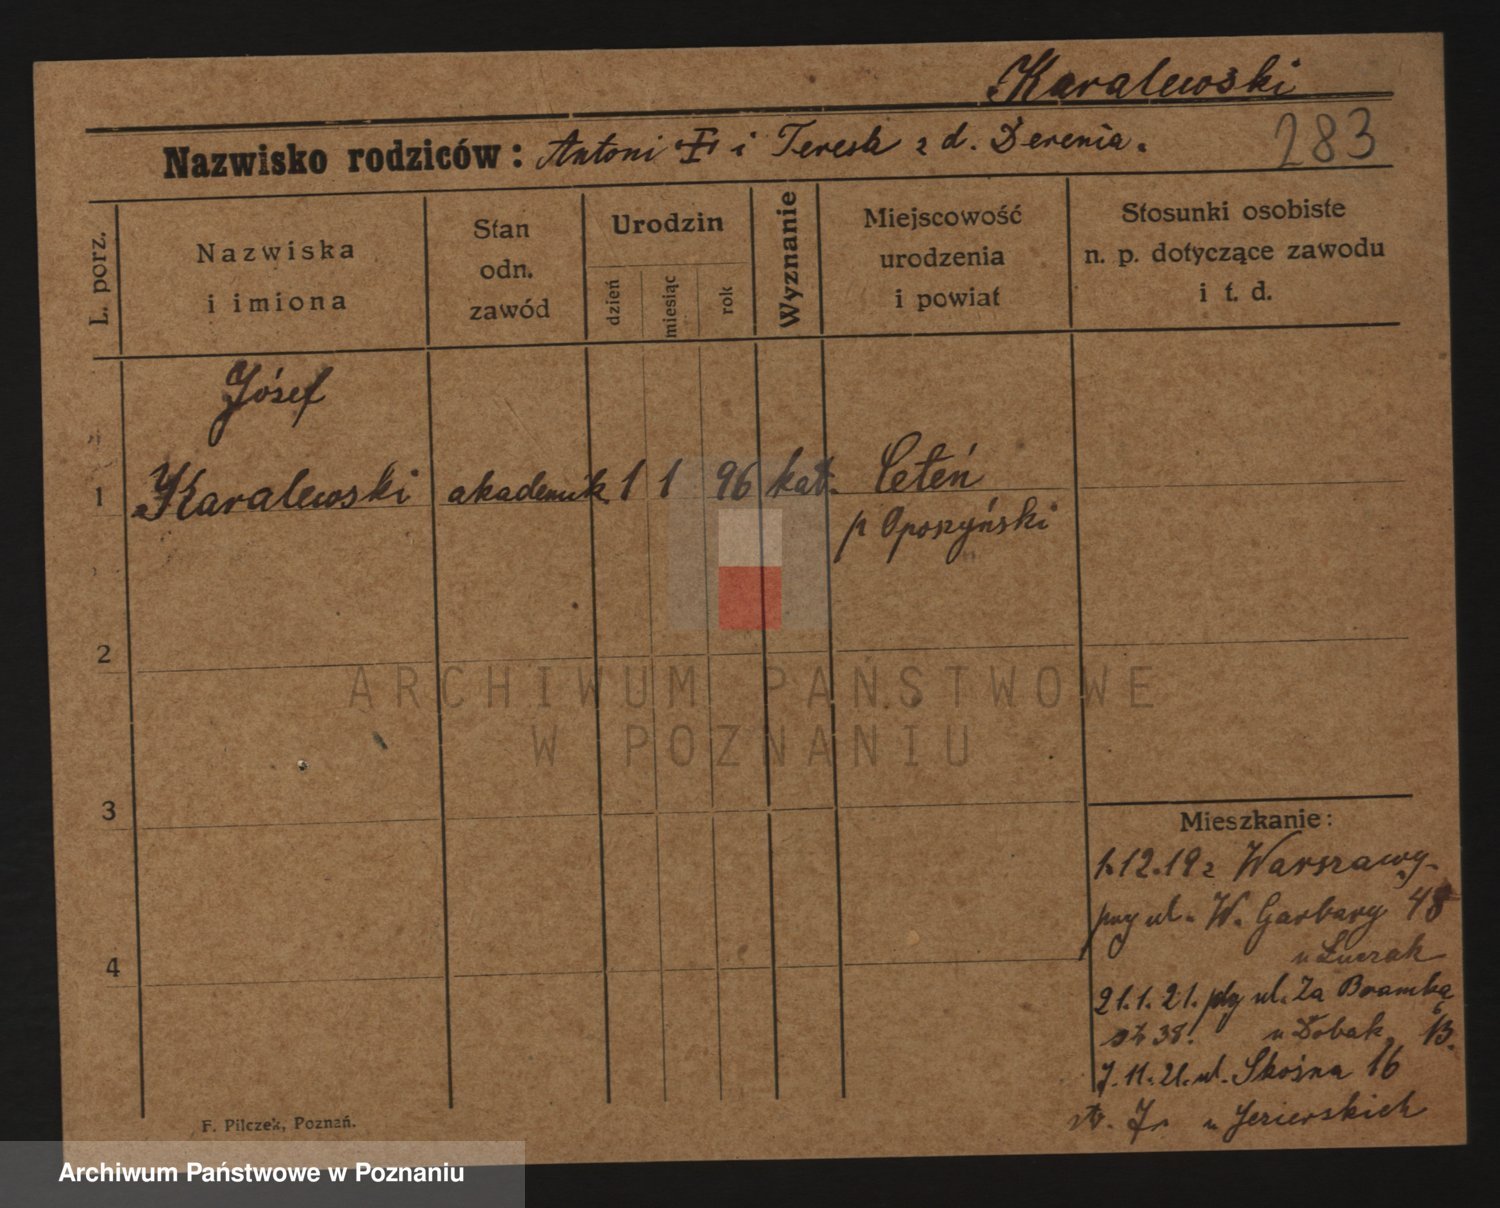 Karalewski
Nazwisko rodziców: Antoni i Teresa z d. Derenia.
283
L. porz.
Nazwiska
i imiona
Stan
odn.
zawód
Urodzin
dzień
miesiąc
rok
Wyznanie
Miejscowość
urodzenia
i powiat
Stosunki osobiste
n. p. dotyczące zawodu
i t. d.
Józef
1 Karalewski akademik 1 1 96 kat. Leteń
p Oposzyński
2
ARCHIWUM PAŃSTWOWE
W POZNANIU
3
Mieszkanie:
1.12.19 z Warszawy
przy ul. W. Garbary 48
u Łuczak
4
21.1.21. ul. Za Bramką
38! u Dobak 13.
7.11.21. ul. Skośna 16
u Jezierskich
F. Pilczek, Poznań.
Archiwum Państwowe w Poznaniu